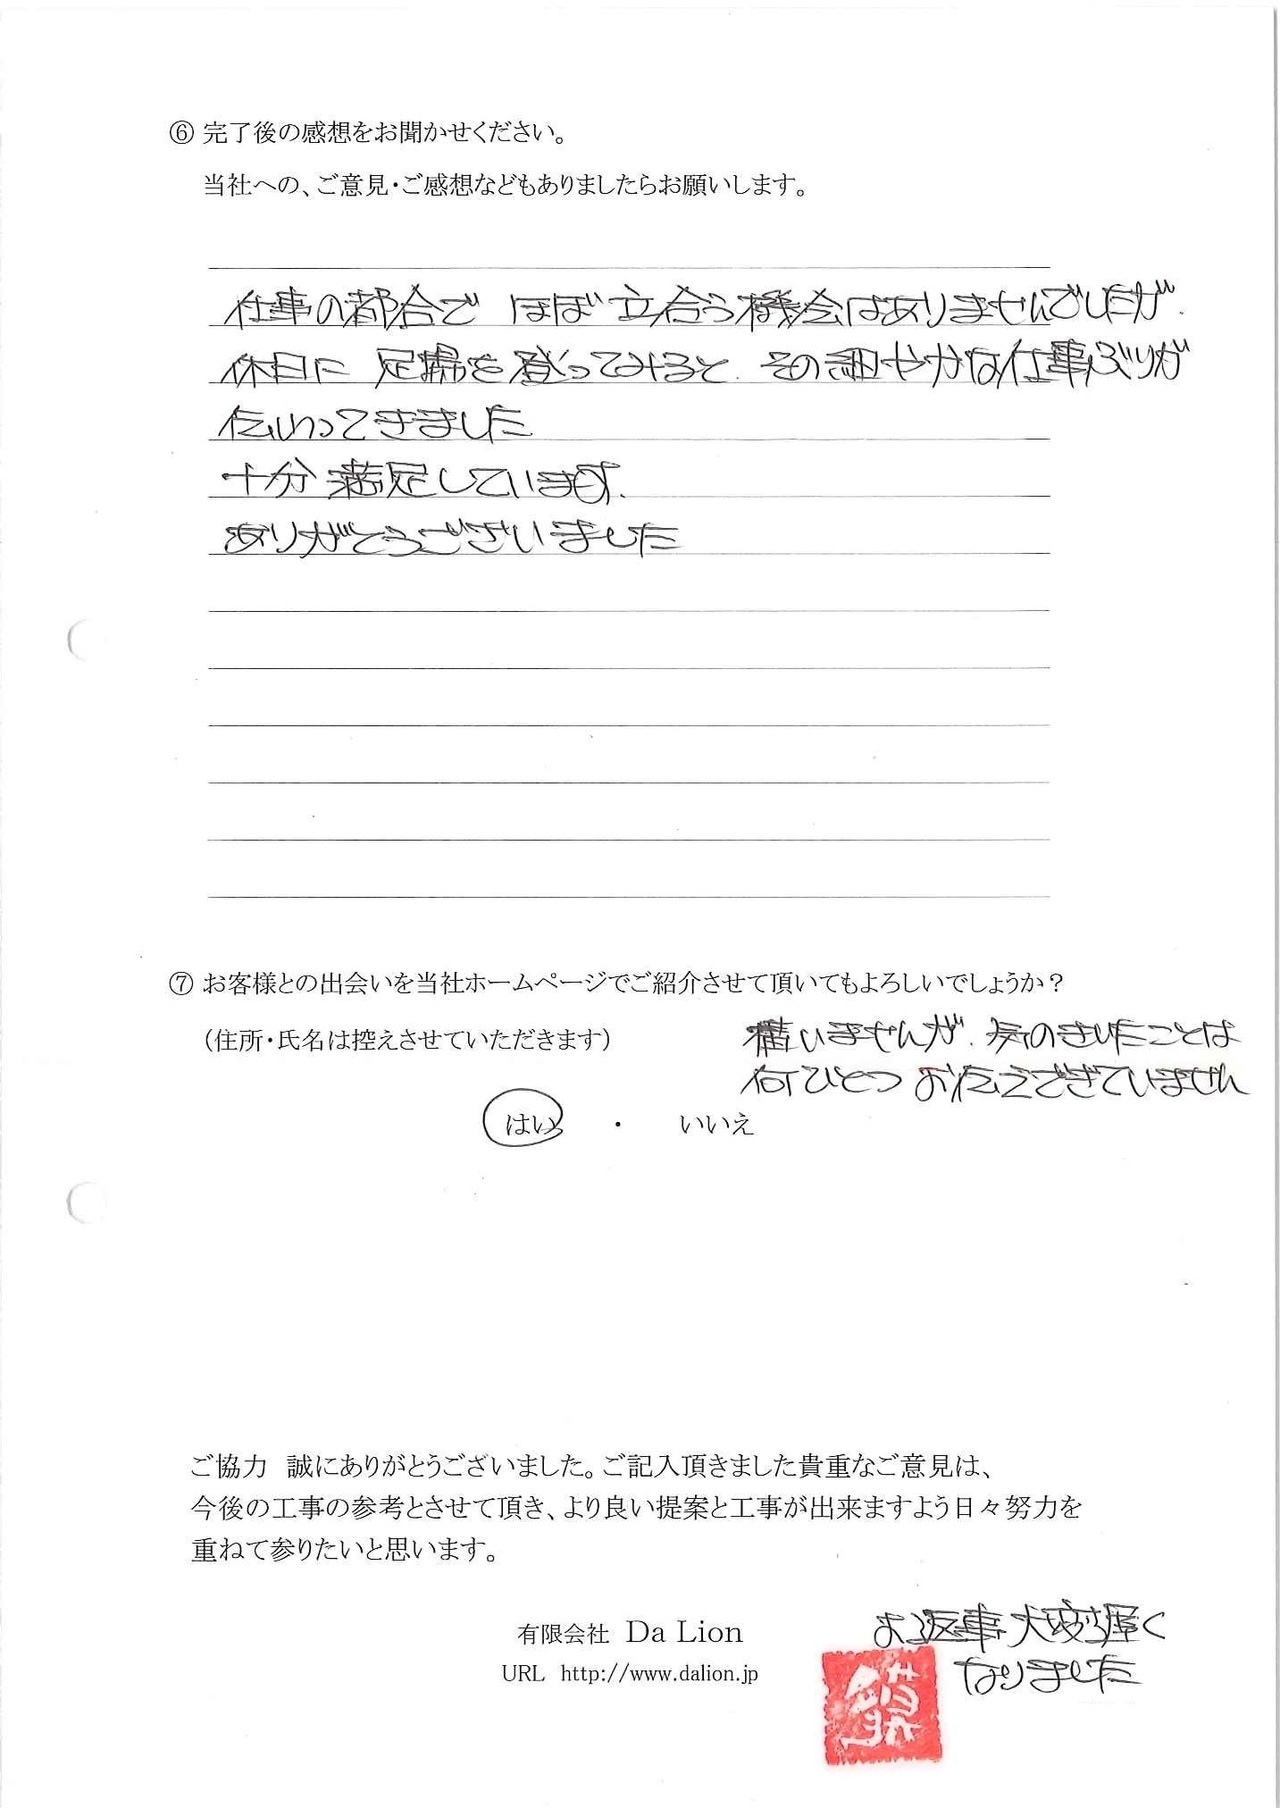 ⑥ 完了後の感想をお聞かせください。
当社への、ご意見・ご感想などもありましたらお願いします。
仕事の都合で ほぼ 立合う機会はありませんでしたが、
休日に 足場を登ってみると、その細やかな仕事ぶりが
伝わってきました
十分満足しています。
ありがとうございました
⑦ お客様との出会いを当社ホームページでご紹介させて頂いてもよろしいでしょうか？
（住所・氏名は控えさせていただきます）
構いませんが、気のきいたことは
何ひとつ お伝えできていません
はい ・ いいえ
ご協力 誠にありがとうございました。ご記入頂きました貴重なご意見は、
今後の工事の参考とさせて頂き、より良い提案と工事が出来ますよう日々努力を
重ねて参りたいと思います。
有限会社 Da Lion
URL http://www.dalion.jp
お返事大変遅く
なりました